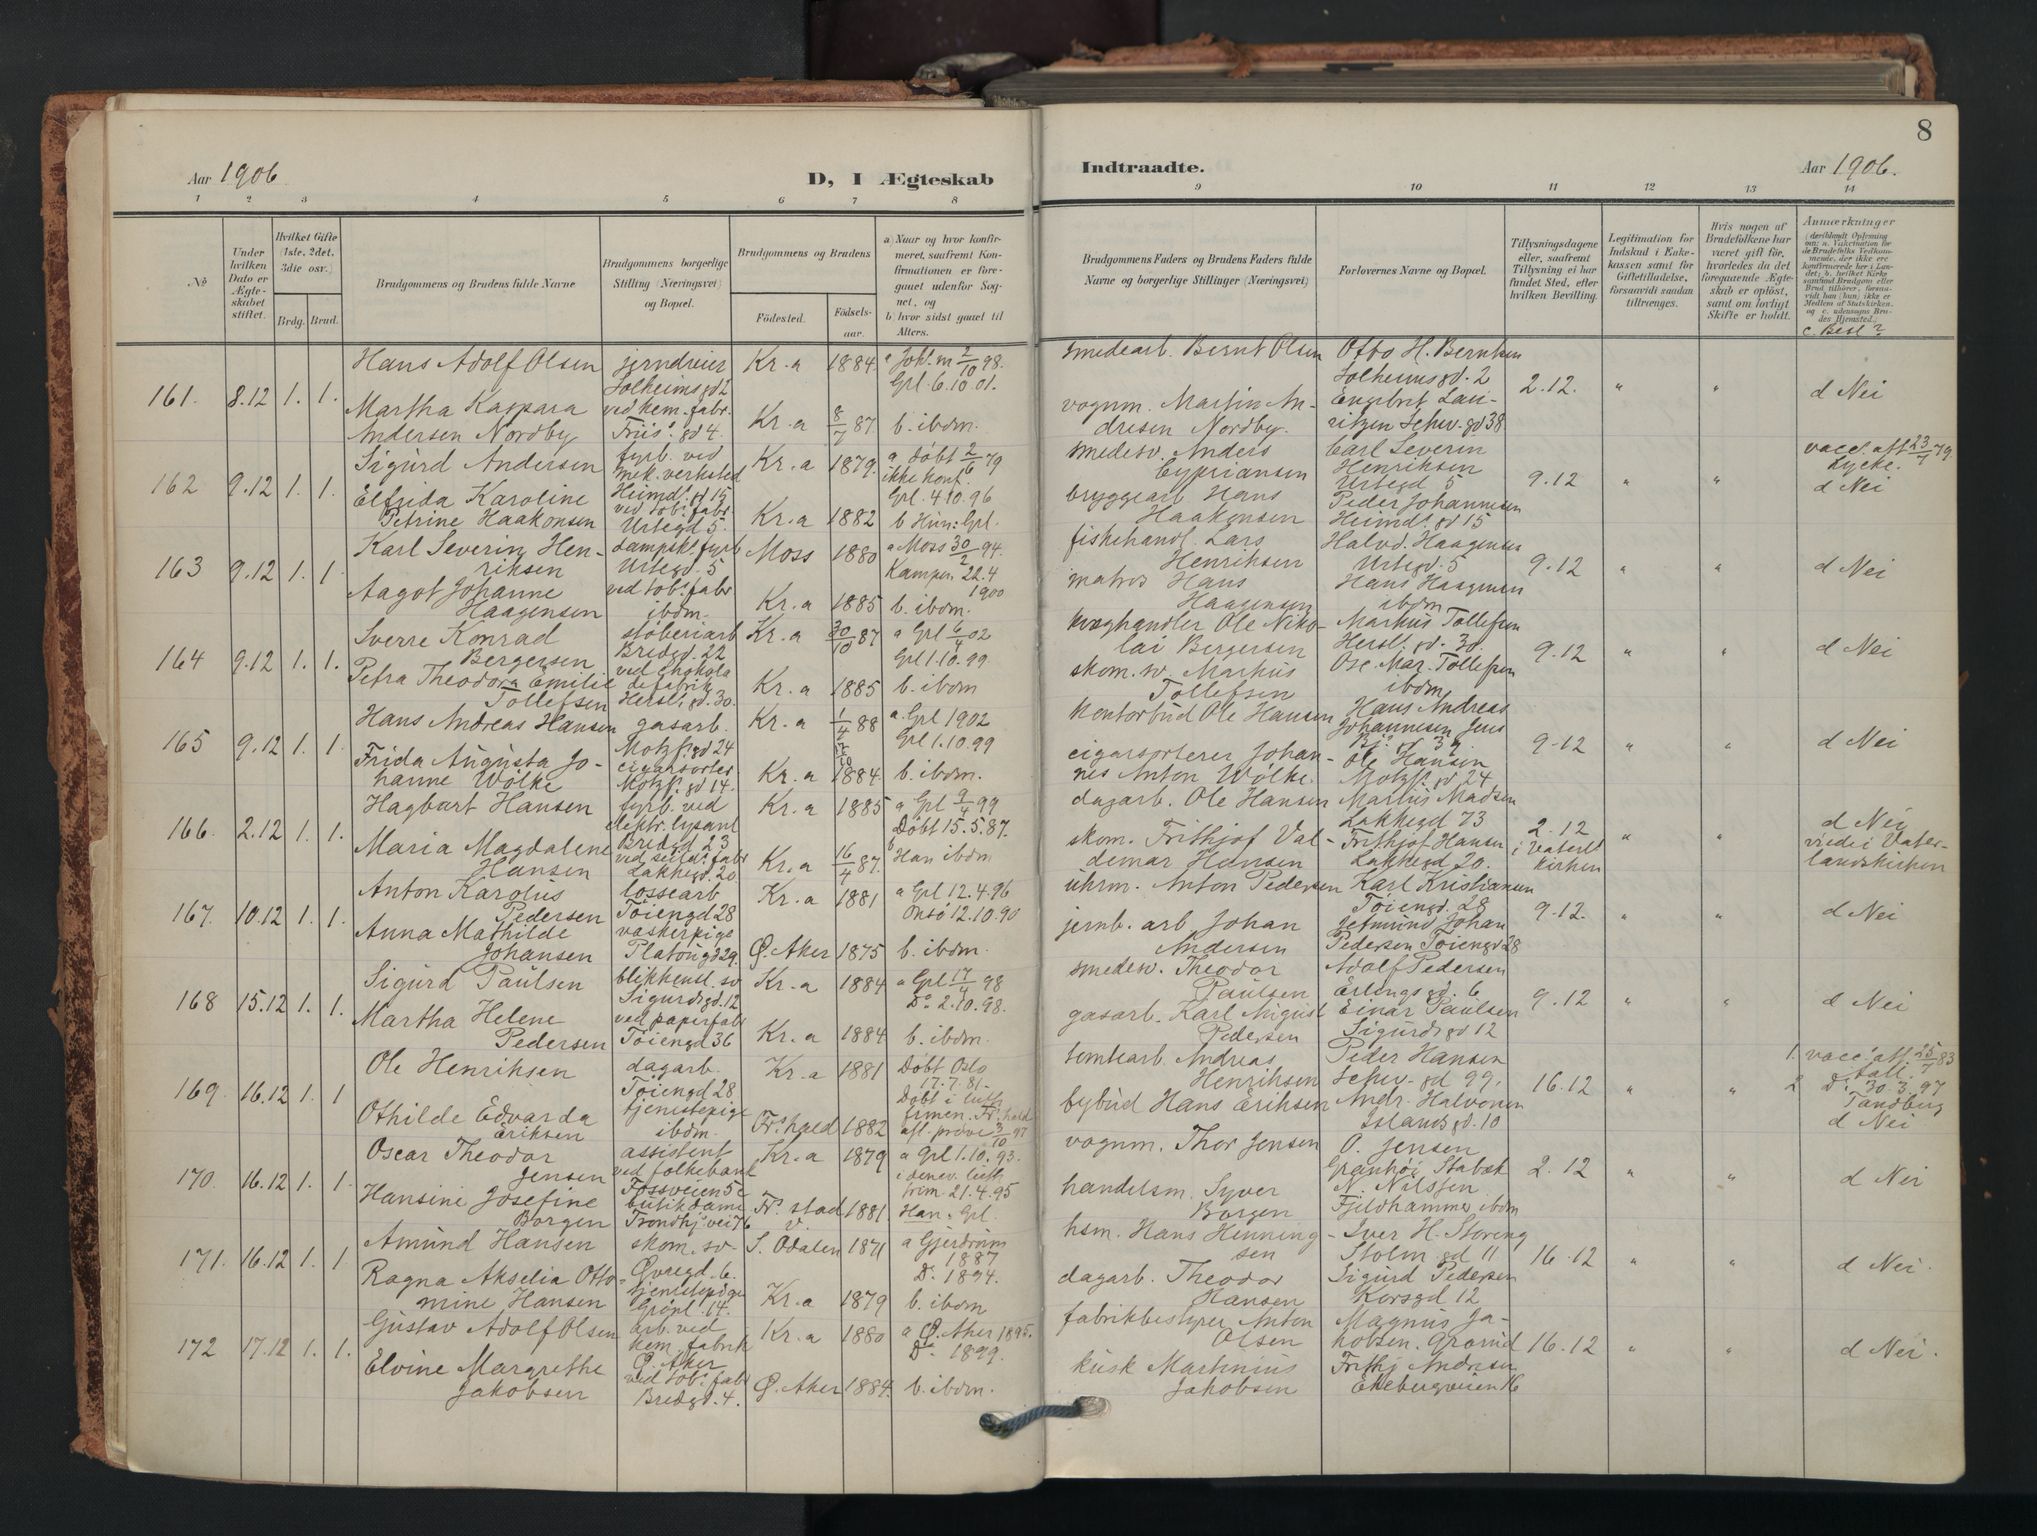 8
Aar 1906.
D, I Ægteskab
Indtraadte.
Aar 1906.
1 2 3 4 5 6 7 8 9 10 11 12 13 14
No
Under hvilken Dato er Ægteskabet stiftet.
Hvilket Gifte (1ste, 2det, 3die osv.)
Brdg. Brud.
Brudgommens og Brudens fulde Navne
Brudgommens borgerlige Stilling (Næringsvei) og Bopæl.
Brudgommens og Brudens
Fødested.
Fødselsaar.
a) Naar og hvor konfirmeret, saafremt Konfirmationen er foregaaet udenfor Sognet, og
b) hvor sidst gaaet til Alters.
Brudgommens Faders og Brudens Faders fulde Navne og borgerlige Stillinger (Næringsvei)
Forlovernes Navne og Bopæl.
Tillysningsdagene eller, saafremt Tillysning ei har fundet Sted, efter hvilken Bevilling.
Legitimation for Indskud i Enkekassen samt for Giftetilladelse, forsaavidt saadan tiltrænges.
Hvis nogen af Brudefolkene har været gift før, hvorledes da det foregaaende Ægteskab er opløst, samt om lovligt Skifte er holdt.
Anmærkninger
c. Besl ?
161. 8.12 1. 1.
Hans Adolf Olsen
jerndreier
Solheimsgd 2
Kr.a 1884
a Joh. m 2/10 98.
Grl. 6.10.01.
Martha Kaspara
Andersen Nordby
ved kem. fabr.
Friis' gd 4.
Kr.a 8/7 87.
b. ibdm.
smedearb. Bernt Olsen
vognm. Martin An-
dresen Nordby.
Otto H. Berntsen
Solheimsgd. 2
Engebret Lau-
ritzen Schw. gd 38
2.12. " "
d Nei
162 9.12 1. 1.
Sigurd Andersen
fyrb. ved
mek. verksted
Heimdl. gd 15
Kr.a 1879.
a Døbt 2/6 79
ikke konf.
Grl. 4.10.96
Elfrida Karoline
Petrine Haakonsen
ved tob. fabr
Urtegd 5.
Kr.a 1882
b Hun: Grl.
smedesv. Anders
Cypriansen
bryggearb. Hans
Haakonsen
Carl Severin
Henriksen
Urtegd 5
Peder Johannesen
Heimdl. gd 15
9.12 " "
vacc. att 23/7 79.
Lycke.
d Nei
163 9.12 1. 1.
Karl Severin Hen-
riksen
dampsk. fyrb
Urtegd. 5
Moss 1880
a Moss 30/2 94.
Kampen 22.4
1900
Aagot Johanne
Haagensen
ved tob. fabr
ibdm.
Kr.a 1885
b. ibdm.
fiskehandl. Lars
Henriksen
matros Hans
Haagensen
Halvd. Haagensen
Urtegd. 5
Hans Haagensen
ibdm
9.12 " "
d Nei
164 9.12 1. 1.
Sverre Konrad
Bergersen
støberiarb
Bredgd. 22
Kr.a 30/10 87
a Grl 6/4 02
Grl 1.10.99
Petra Theodora Emilie
Tollefsen
ved chokola
defabrik
Hersl. gd. 30.
Kr.a 1885
b. ibdm
kvæghandler Ole Niko-
lai Bergersen
skom. sv. Markus
Tollefsen
Markus Tollefsen
Hersl. gd. 30.
Osc. Mar. Tollefsen
ibdm
9.12 " "
d Nei
165 9.12 1. 1.
Hans Andreas Hansen
gasarb.
Motzf. gd 24
Kr.a 1/4 88
a. Grl 1902
Grl 1.10.99
Frida Augusta Jo-
hanne Wölke
cigarsorter
Motzf. gd 14.
Kr.a 1884.
b. ibdm.
kontorbud Ole Hansen
cigarsorterer Johan-
nes Anton Wölke.
Hans Andreas
Johannesen Jens
Ole Hansen
Motzf. gd 24
9-12 " "
d Nei
166. 2.12 1. 1.
Hagbart Hansen
fyrb. ved
elektr. lysanl
Bredgd 23
Kr.a 1885
a Grl 9/4 99
Døbt 15.5.87.
Maria Magdalene
Hansen
Lakkegd. 20
Kr.a 16/4 87.
b Han ibdm
dagarb. Ole Hansen
skom. Frithjof Val-
demar Hansen
Marius Madsen
Lakkegd 73
Frithjof Hansen
Lakkegd 20.
2.12
i Vaterl.
kirken
" "
d Nei
viede i Vater-
landskirken
167. 10.12 1. 1.
Anton Karolus
Pedersen
lossearb
Töiengd 28
Kr.a 1881
a Grl 12.4.96
Onsö 12.10.90
Anna Mathilde
Johansen
vaskerpige
Platougd 29.
Ø. Aker 1875
b. ibdm.
uhrm. Anton Pedersen
jernb. arb Johan
Andersen
Karl Kristiansen
Töiengd. 28
Johan
Pedersen Töiengd 28
9.12. " "
d Nei
168 15.12 1. 1.
Sigurd Paulsen
blikkensl. sv
Sigurdsgd. 12
Kr.a 1884
a Grl. 17/4 98
Do. 2.10.98.
Martha Helene
Pedersen
ved papirfabr
Töiengd 36
Kr.a 1884
b. ibdm.
smedesv. Theodor
Paulsen
gasarb. Karl August
Pedersen
Adolf Pedersen
Erlingsgd. 6
Einar Paulsen
Sigurdsgd 12
9.12 " "
d Nei
169. 16.12 1. 1
Ole Henriksen
dagarb.
Töiengd 28
Kr.a 1881
Döbt Oslo
17.7.81.
Othilde Edvarda
Eriksen
tjenestepige
ibdm.
Fr.hald 1882
Döbt i luth
frimen. Fr.hald
afl. pröve 3/10 97
tomtearb. Andreas
Henriksen
bybud Hans Eriksen
Peder Hansen
Schw. gd 99.
Andr. Halvorsen
Islandsgd. 10
16.12 " "
1. vacc. att 25/7 83
2 Do. 30.3.97
Tandberg
d Nei
170. 16.12 1. 1.
Oscar Theodor
Jensen
assistent
ved folkebank
Fossveien 5c
Kr.a 1879
a Grl 1.10.93.
Hansine Josefine
Borgen
butikdame
Trondhj. vei 76
Fr. stad 1881.
i den ev. luth
frim 21.4.95
Han: Grl.
vognm. Thor Jensen
handelsm. Syver
Borgen
O. Jensen
Granhöi Stabæk
N. Nilssen
Fjeldhammer ibdm
2.12 " "
d Nei
171. 16.12 1. 1
Amund Hansen
skom. sv-
Øvregd. 6.
S. Odalen 1871
a Gjerdrum
1887
Do. 1894.
Ragna Akselia Otto-
mine Hansen
tjenestepige
Grönl. 14.
Kr.a 1879
b. ibdm
hsm. Hans Henning-
sen
dagarb. Theodor
Hansen
Iver H. Storeng
Stolm. gd 11
Sigurd Pedersen
Korsgd 12
16.12 " "
d Nei.
172 17.12 1. 1.
Gustav Adolf Olsen
arb. ved
kem. fabrik
Ø. Aker
Kr.a 1880
a Ø. Aker 1895.
Do. 1899.
Elvine Margrethe
Jakobsen
ved tob. fabr
Bredgd. 4.
Ø. Aker 1884.
b. ibdm.
fabrikbestyrer Anton
Olsen
kusk Martinius
Jakobsen
Magnus Ja-
kobsen. Grorud
Frithj Andresen
Ekebergveien 16
16.12 " "
d Nei.